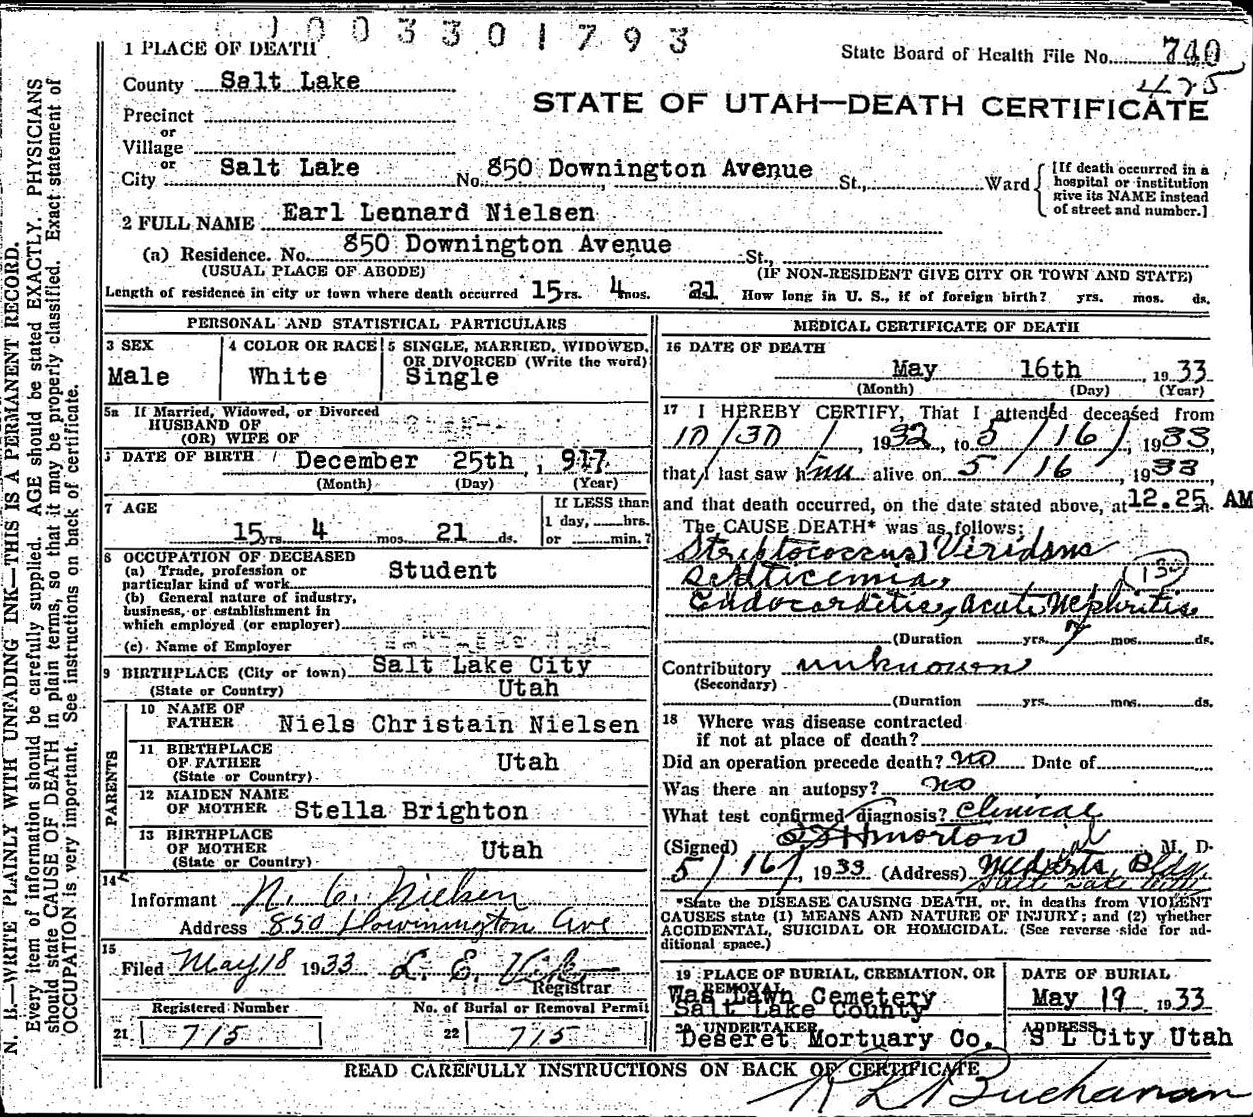 1003301793
1 PLACE OF DEATH
State Board of Health File No. 740
425
County Salt Lake
STATE OF UTAH—DEATH CERTIFICATE
Precinct
or
Village
or
City Salt Lake No. 850 Downington Avenue St., Ward
[If death occurred in a
hospital or institution
give its NAME instead
of street and number.]
2 FULL NAME Earl Lennard Nielsen
(a) Residence. No. 850 Downington Avenue St.,
(USUAL PLACE OF ABODE) (IF NON-RESIDENT GIVE CITY OR TOWN AND STATE)
Length of residence in city or town where death occurred 15 yrs. 4 mos. 21 How long in U. S., if of foreign birth? yrs. mos. ds.
PERSONAL AND STATISTICAL PARTICULARS
3 SEX
Male
4 COLOR OR RACE
White
5 SINGLE, MARRIED, WIDOWED,
OR DIVORCED (Write the word)
Single
5a If Married, Widowed, or Divorced
HUSBAND OF
(OR) WIFE OF
DATE OF BIRTH December 25th, 917
(Month) (Day) (Year)
7 AGE
15 yrs. 4 mos. 21 ds.
If LESS than
1 day, hrs.
or min.?
8 OCCUPATION OF DECEASED
(a) Trade, profession or
particular kind of work Student
(b) General nature of industry,
business, or establishment in
which employed (or employer)
(c) Name of Employer
9 BIRTHPLACE (City or town) Salt Lake City
(State or Country) Utah
PARENTS
10 NAME OF
FATHER Niels Christain Nielsen
11 BIRTHPLACE
OF FATHER Utah
(State or Country)
12 MAIDEN NAME
OF MOTHER Stella Brighton
13 BIRTHPLACE
OF MOTHER Utah
(State or Country)
14
Informant N. C. Nielsen
Address 850 Downington Ave
15
Filed May 18 1933 L. E.
Registrar
Registered Number
21 715
No. of Burial or Removal Permit
22 715
MEDICAL CERTIFICATE OF DEATH
16 DATE OF DEATH
May 16th, 1933
(Month) (Day) (Year)
17 I HEREBY CERTIFY, That I attended deceased from
10/30/, 1932, to 5/16/, 1933,
that I last saw him alive on 5/16, 1933
and that death occurred, on the date stated above, at 12.25 AM
The CAUSE DEATH* was as follows:
Streptococcus Viridans
Septicemia,
130
Endocarditis, Acute Nephritis
(Duration yrs. 7 mos. ds.
Contributory unknown
(Secondary)
(Duration yrs. mos. ds.
18 Where was disease contracted
if not at place of death?
Did an operation precede death? no Date of
Was there an autopsy? no
What test confirmed diagnosis? Clinical
(Signed) Morton M. D.
5/16/, 1933 (Address) Med Arts Bldg.
Salt Lake City
*State the DISEASE CAUSING DEATH, or, in deaths from VIOLENT
CAUSES state (1) MEANS AND NATURE OF INJURY; and (2) whether
ACCIDENTAL, SUICIDAL OR HOMICIDAL. (See reverse side for additional space.)
19 PLACE OF BURIAL, CREMATION, OR
REMOVAL
Was Lawn Cemetery
Salt Lake County
DATE OF BURIAL
May 19 1933
20 UNDERTAKER
Deseret Mortuary Co.
ADDRESS
S L City Utah
READ CAREFULLY INSTRUCTIONS ON BACK OF CERTIFICATE
Buchanan
N. B.—WRITE PLAINLY WITH UNFADING INK—THIS IS A PERMANENT RECORD.
Every item of information should be carefully supplied. AGE should be stated EXACTLY. PHYSICIANS
should state CAUSE OF DEATH in plain terms, so that it may be properly classified. Exact statement of
OCCUPATION is very important. See instructions on back of certificate.